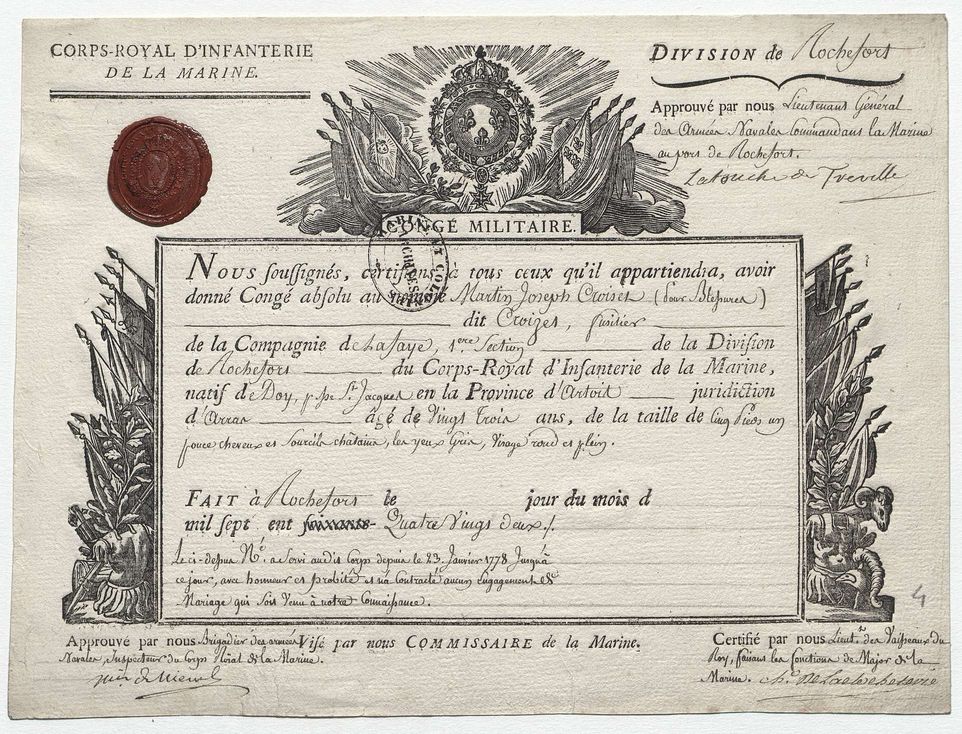 CORPS-ROYAL D'INFANTERIE
DE LA MARINE.
DIVISION de Rochefort
Approuvé par nous Lieutenant Général
des Armées Navales Commandant la Marine
au port de Rochefort.
Latouche de Treville
CONGÉ MILITAIRE.
NOUS soussignés, certifions à tous ceux qu'il appartiendra, avoir
donné Congé absolu au nommé Martin Joseph Croiset (pour Blessures)
dit Croizet, fusilier
de la Compagnie de Lafaye, 1ere Section de la Division
de Rochefort du Corps-Royal d'Infanterie de la Marine,
natif de St Jacques en la Province d'Artois juridiction
d'Arras âgé de Vingt Trois ans, de la taille de Cinq Pieds un
pouce cheveux et Sourcils châtains, les yeux Gris, Visage rond et plein.
FAIT à Rochefort le jour du mois d
mil sept ent Quatre Vingt deux ./.
Le ci-dessus Né. a Servi audit Corps depuis le 23. Janvier 1778 Jusqu'à
ce jour, avec honneur et probité et n'a Contracté aucun Engagement de
Mariage qui Soit Venu à notre Connaissance.
4
Approuvé par nous Brigadier des armées
Navales, Inspecteur du Corps Royal de la Marine.
Visé par nous COMMISSAIRE de la Marine.
Certifié par nous Lieut. des Vaisseaux du
Roy, faisant les fonctions de Major de la
Marine.